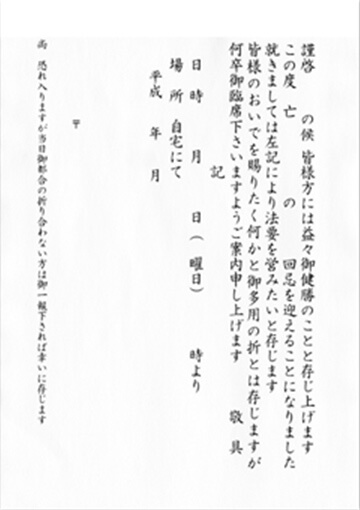 謹啓　　の候 皆様方には益々御健勝のことと存じ上げます
この度　亡　　　の　　　回忌を迎えることになりました
就きましては左記により法要を営みたいと存じます
皆様のおいでを賜りたく何かと御多用の折とは存じますが
何卒御臨席下さいますようご案内申し上げます　　敬具
記
日時　月　　日(　曜日)　　時より
場所　自宅にて
平成　年　月
〒
尚　恐れ入りますが当日御都合の折り合わない方は御一報下されば幸いに存じます